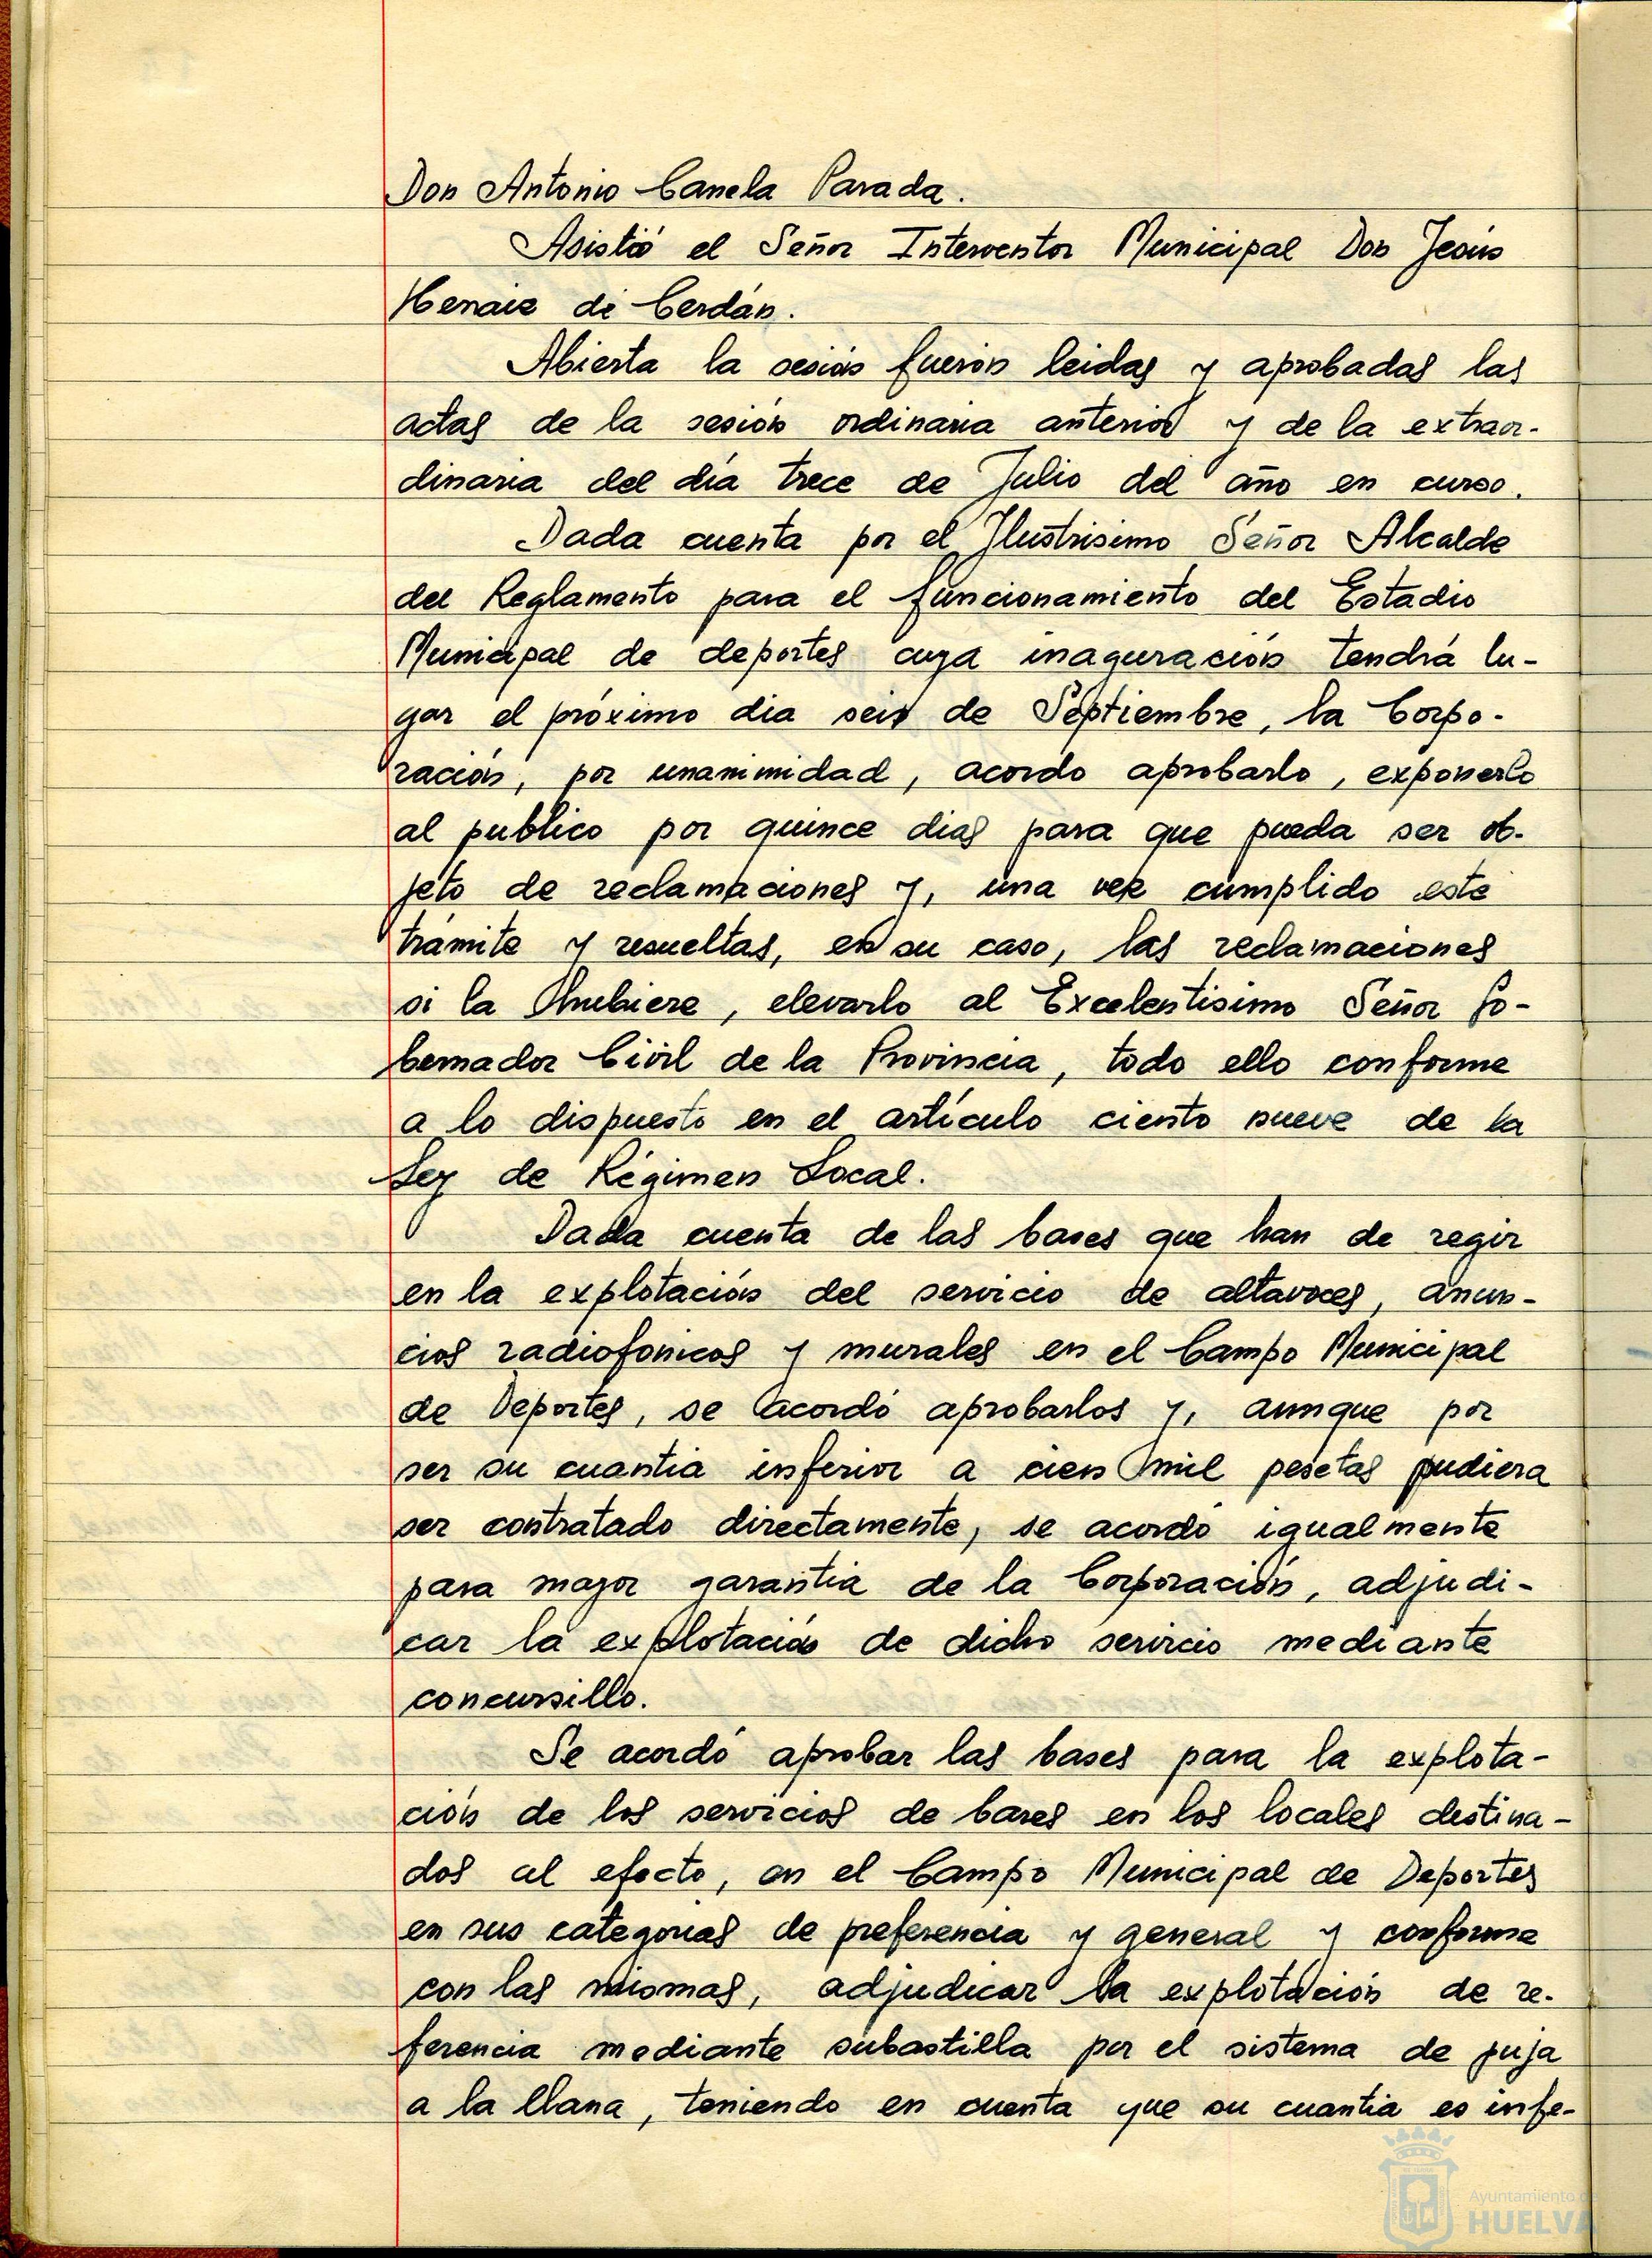 Don Antonio Canela Parada.
Asistió el Señor Interventor Municipal Don Jesús
Henaiz de Cerdán.
Abierta la sesión fueron leidas y aprobadas las
actas de la sesión ordinaria anterior y de la extraor-
dinaria del día trece de Julio del año en curso.
Dada cuenta por el Ilustrisimo Señor Alcalde
del Reglamento para el funcionamiento del Estadio
Municipal de deportes cuya inaguración tendrá lu-
gar el próximo dia seis de Septiembre, la Corpo-
ración, por unanimidad, acordo aprobarlo, exponerlo
al publico por quince dias para que pueda ser ob-
jeto de reclamaciones y, una vez cumplido este
trámite y resueltas, en su caso, las reclamaciones
si la hubiere, elevarlo al Excelentisimo Señor Go-
bernador Civil de la Provincia, todo ello conforme
a lo dispuesto en el artículo ciento nueve de la
Ley de Régimen Local.
Dada cuenta de las bases que han de regir
en la explotación del servicio de altavoces, anun-
cios radiofonicos y murales en el Campo Municipal
de Deportes, se acordó aprobarlos y, aunque por
ser su cuantia inferior a cien mil pesetas pudiera
ser contratado directamente, se acordó igualmente
para mayor garantia de la Corporación, adjudi-
car la explotación de dicho servicio mediante
concursillo.
Se acordó aprobar las bases para la explota-
ción de los servicios de bares en los locales destina-
dos al efecto, en el Campo Municipal de Deportes
en sus categorias de preferencia y general y conforme
con las mismas, adjudicar la explotación de re-
ferencia mediante subastilla por el sistema de puja
a la llana, teniendo en cuenta que su cuantia es infe-
Ayuntamiento de
HUELVA